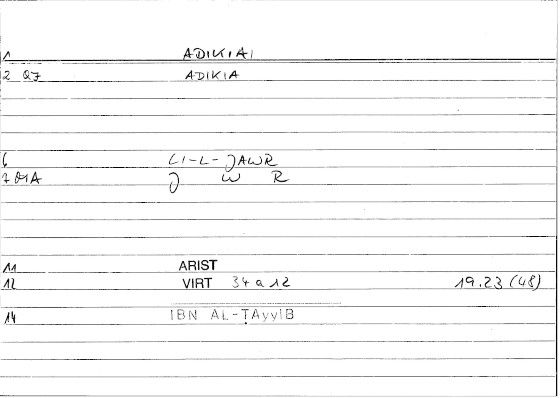 1 ADIKIAI
2 07 ADIKIA
6 LI-L-JAWR
7 01A J W R
11 ARIST
12 VIRT 34 a 12 19.23 (48)
14 IBN AL-ṬAyyIB